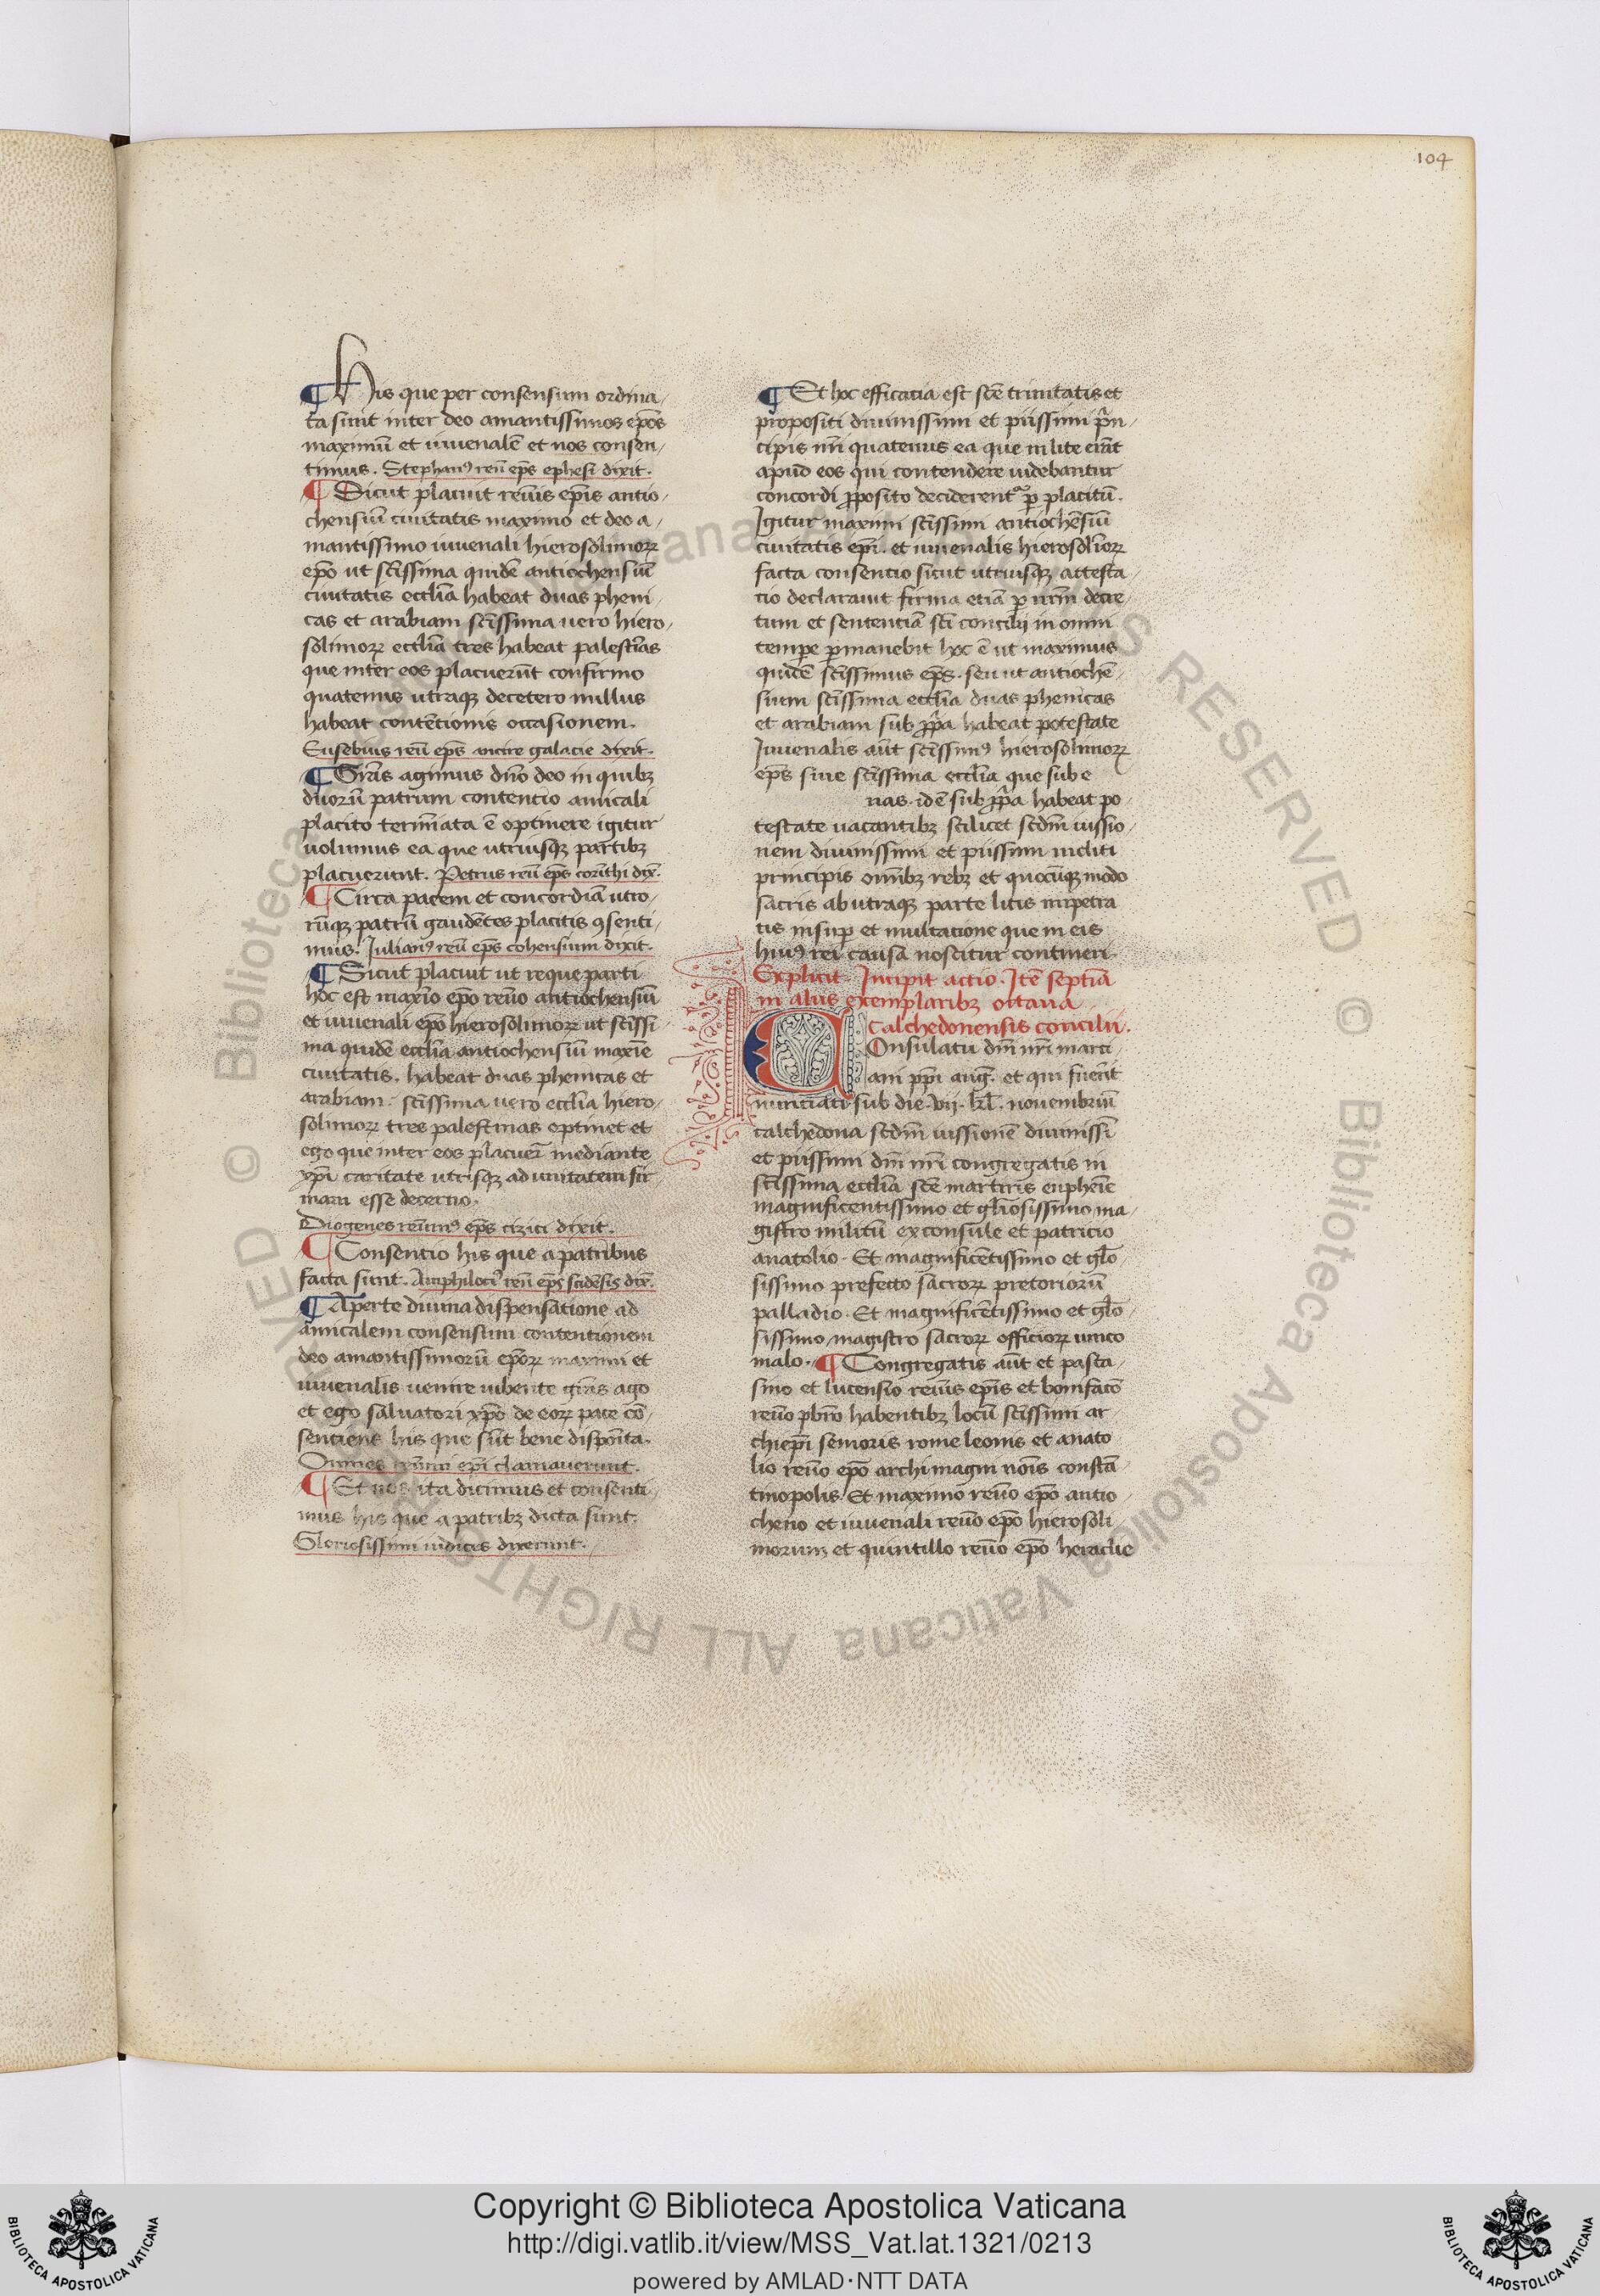 104
¶ His que per consensum ordina
ta sunt inter deo amantissimos ep̄os
maximū et iuuenalē et nos consen
timus. Stephanꝰ reū ep̄s ephesi dixit.
¶ Sicut placuit reuīs ep̄is antio
chensiū ciuitatis maximo et deo a
mantissimo iuuenali hierosolimoꝝ
ep̄o ut sc̄issima quidē antiochensiū
ciuitatis eccl̄ia habeat duas pheni
cas et arabiam sc̄issima uero hiero
solimoꝝ eccl̄ia tres habeat palestīas
que inter eos placuerūt confirmo
quatenus utraqꝫ decetero nullus
habeat contētionis occasionem.
Eusebius reū ep̄s ancire galacie dixit.
¶ Gr̄as agimus dn̄o deo in quibꝫ
duorū patrum contencio amicali
placito termīata ē optinere igitur
uolumus ea que utriusqꝫ partibꝫ
placuerunt. Petrus reū ep̄s corīthi dix̄.
¶ Circa pacem et concordiā utro
rūqꝫ patrū gaudētes placitis ꝯsenti
mus. Iulianꝰ reū ep̄s cohensium dixit.
¶ Sicut placuit utreque parti
hoc est maxīo ep̄o reuō antiochensiū
et iuuenali ep̄o hierosolimoꝝ ut sc̄issi
ma quidē eccl̄ia antiochensiū maxīe
ciuitatis. habeat duas phenicas et
arabiam. sc̄issima uero eccl̄ia hiero
solimoꝝ tres palestinas optinet et
ego que inter eos placuer̄ mediante
xp̄i caritate utrisqꝫ ad unitatem fir
mam esse decerno.
Diogenes reūmꝰ ep̄s cizici dixit.
¶ Consentio his que a patribus
facta sunt. Amphilociꝰ reū ep̄s sidēsis dix̄.
¶ Aperte diuina dispensatione ad
amicalem consensum contentionem
deo amantissimorū ep̄oꝝ maximi et
iuuenalis uenire iubente gr̄as ago
et ego saluatori xp̄o de eoꝝ pace cō
sentiens his que sūt bene disposita.
Omnes reūmi ep̄i clamauerunt.
¶ Et nos ita dicimus et consenti
mus his que a patribꝫ dicta sunt.
Gloriosissimi iudices dixerunt.
¶ Et hoc efficatia est sc̄e trinitatis et
propositi diuinissimi et piissimi p̄n
cipis nr̄i quatenus ea que in lite erāt
apud eos qui contendere uidebantur
concordi ꝓposito deciderent ꝑ placitū.
Igitur maximi sc̄issimi antiochēsiū
ciuitatis ep̄i. et iuuenalis hierosolīoꝝ
facta consencio sicut utriusqꝫ attesta
tio declarauit firma etiā ꝑ nr̄m decre
tum et sententiā sc̄i concilij in omni
tempe ꝑmanebit hoc ē ut maximus
quidē sc̄issimus ep̄s. seu ut antiochē
sium sc̄issima eccl̄ia duas phenicas
et arabiam sub ꝓp̄a habeat potestate
Iuuenalis aūt sc̄issimꝰ hierosolimoꝝ
ep̄s siue sc̄issima eccl̄ia que sub e
nas. idē sub ꝓp̄a habeat po
testate uacantibꝫ scilicet sc̄dm iussio
nem diuinissimi et piissimi incliti
principis om̄ibꝫ rebꝫ et quocūqꝫ modo
sacris ab utraqꝫ parte litis impetra
tis insuꝑ et multatione que in eis
huiꝰ rei causa noscitur contineri.
Explicit. Incipit actio. Itē septīa
in aliis exemplaribꝫ octaua
Calchedonensis concilii.
COnsulatu dn̄i nr̄i marci
ani ꝑpi auḡ. et qui fuerīt
nunciati sub die. vii. kl̄. nouembriū
calchedona sc̄dm iussionē diuinissī
et piissimi dn̄i nr̄i congregatis in
sc̄issima eccl̄ia sc̄e martiris euphēie
magnificentissimo et gl̄iosissimo ma
gistro militū ex consule et patricio
anatolio. Et magnificētissimo et gl̄o
sissimo prefecto sacroꝝ pretoriorū
palladio. Et magnificētissimo et gl̄o
sissimo magistro sacroꝝ officioꝝ uinco
malo. ¶ Congregatis aūt et pasca
sino et lucensio reuīs ep̄is et bonifacō
reuō pbr̄o habentibꝫ locū sc̄issimi ar
chiep̄i senioris rome leonis et anato
lio reuō ep̄o archi magni noīs constā
tinopolis. Et maximo reuō ep̄o antio
cheno et iuuenali reuō ep̄o hierosoli
morum et quintillo reuō ep̄o heraclie
Copyright © Biblioteca Apostolica Vaticana
http://digi.vatlib.it/view/MSS_Vat.lat.1321/0213
powered by AMLAD·NTT DATA
BIBLIOTECA APOSTOLICA VATICANA
BIBLIOTECA APOSTOLICA VATICANA
© Biblioteca Apostolica Vaticana ALL RIGHTS RESERVED